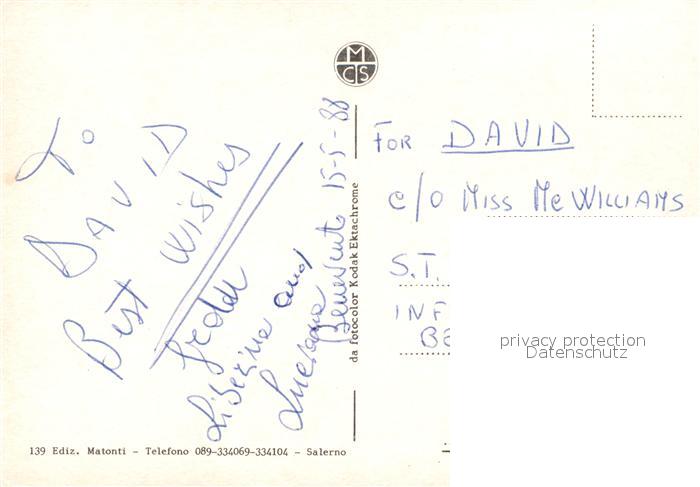 M
CS
To
DAVID
Best wishes
from
Liberina and
Luciana
Benevento 15-5-88
da fotocolor Kodak Ektachrome
FOR DAVID
c/o MISS McWILLIAMS
S.T.
INF
BE
privacy protection
Datenschutz
139 Ediz. Matonti - Telefono 089-334069-334104 - Salerno